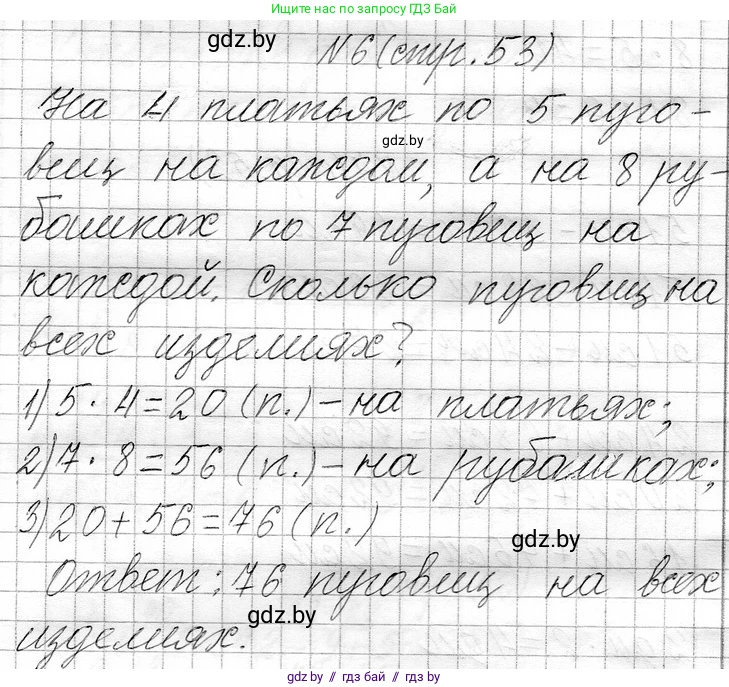 Ищите приложение ГДЗ Бай
gdz.by
N6 (стр. 53)
На 4 платьях по 5 пуго-
gdz.by
виц на каждом, а на 8 ру-
башках по 7 пуговиц на
каждой. Сколько пуговиц на
всех изделиях?
1) 5 · 4 = 20 (п.) - на платьях;
2) 7 · 8 = 56 (п.) - на рубашках;
3) 20 + 56 = 76 (п.)
gdz.by
Ответ: 76 пуговиц на всех
gdz.by
изделиях.
gdz.by // гдз бай // gdz.by